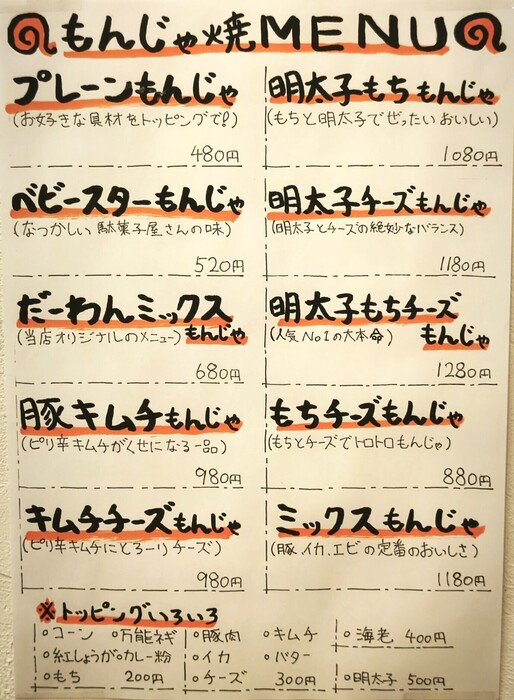 もんじゃ焼MENU
プレーンもんじゃ
(お好きな具材をトッピングで!)
480円
ベビースターもんじゃ
(なつかしい駄菓子屋さんの味)
520円
だーわんミックス
(当店オリジナルのメニュー)もんじゃ
680円
豚キムチもんじゃ
(ピリ辛キムチがくせになる一品)
980円
キムチチーズもんじゃ
(ピリ辛キムチにとろーりチーズ)
980円
明太子もちもんじゃ
(もちと明太子でぜったいおいしい)
1080円
明太子チーズもんじゃ
(明太子とチーズの絶妙なバランス)
1180円
明太子もちチーズ
(人気No.1の大本命) もんじゃ
1280円
もちチーズもんじゃ
(もちとチーズでトロトロもんじゃ)
880円
ミックスもんじゃ
(豚イカエビの定番のおいしさ)
1180円
※トッピングいろいろ
○コーン ○万能ネギ
○紅しょうが○カレー粉
○もち 200円
○豚肉 ○キムチ
○イカ ○バター
○チーズ 300円
○海老 400円
○明太子 500円